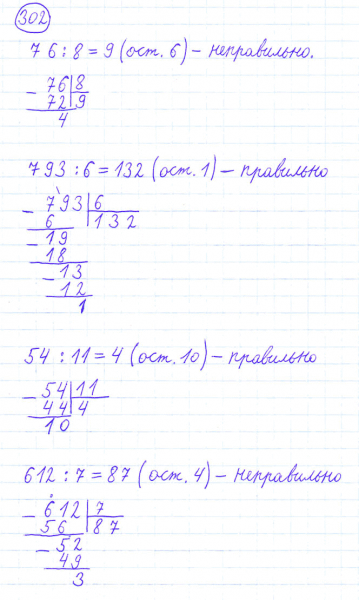 302
76 : 8 = 9 (ост. 6) – неправильно.
– 76 8
72 9
4
793 : 6 = 132 (ост. 1) – правильно
– 793 6
6 132
– 19
18
– 13
12
1
54 : 11 = 4 (ост. 10) – правильно
– 54 11
44 4
10
612 : 7 = 87 (ост. 4) – неправильно
– 612 7
56 87
– 52
49
3